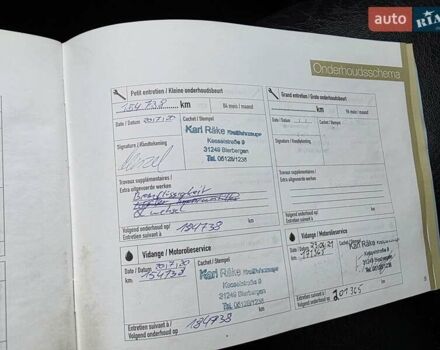 auto RIA
Onderhoudsschema
Petit entretien / Kleine onderhoudsbeurt
154738 km
84 mois / maand
Date / Datum
2017,20
Cachet / Stempel
Karl Räke Kraftfahrzeuge
Kesselstraße 9
31249 Bierbergen
Tel. 05128/1238
Signature / Handtekening
Travaux supplémentaires /
Extra uitgevoerde werken
Bremsflüssigkeit
wechsel
Volgend onderhoud op /
Entretien suivant à
184738 km
Grand entretien / Grote onderhoudsbeurt
km
84 mois / maand
Date / Datum
Cachet / Stempel
Signature / Handtekening
Travaux supplémentaires /
Extra uitgevoerde werken
Volgend onderhoud op /
Entretien suivant à
km
Vidange / Motorolieservice
Date / Datum 2017,20
km 154738
Cachet / Stempel
Karl Räke Kraftfahrzeuge
Kesselstraße 9
31249 Bierbergen
Tel. 05128/1238
Entretien suivant à /
Volgend onderhoud op
184738 km
Vidange / Motorolieservice
Date / Datum
km 171365
Cachet / Stempel
Karl Räke
Kesselstraße 9
31249 Bierbergen
Entretien suivant à /
Volgend onderhoud op
201365 km